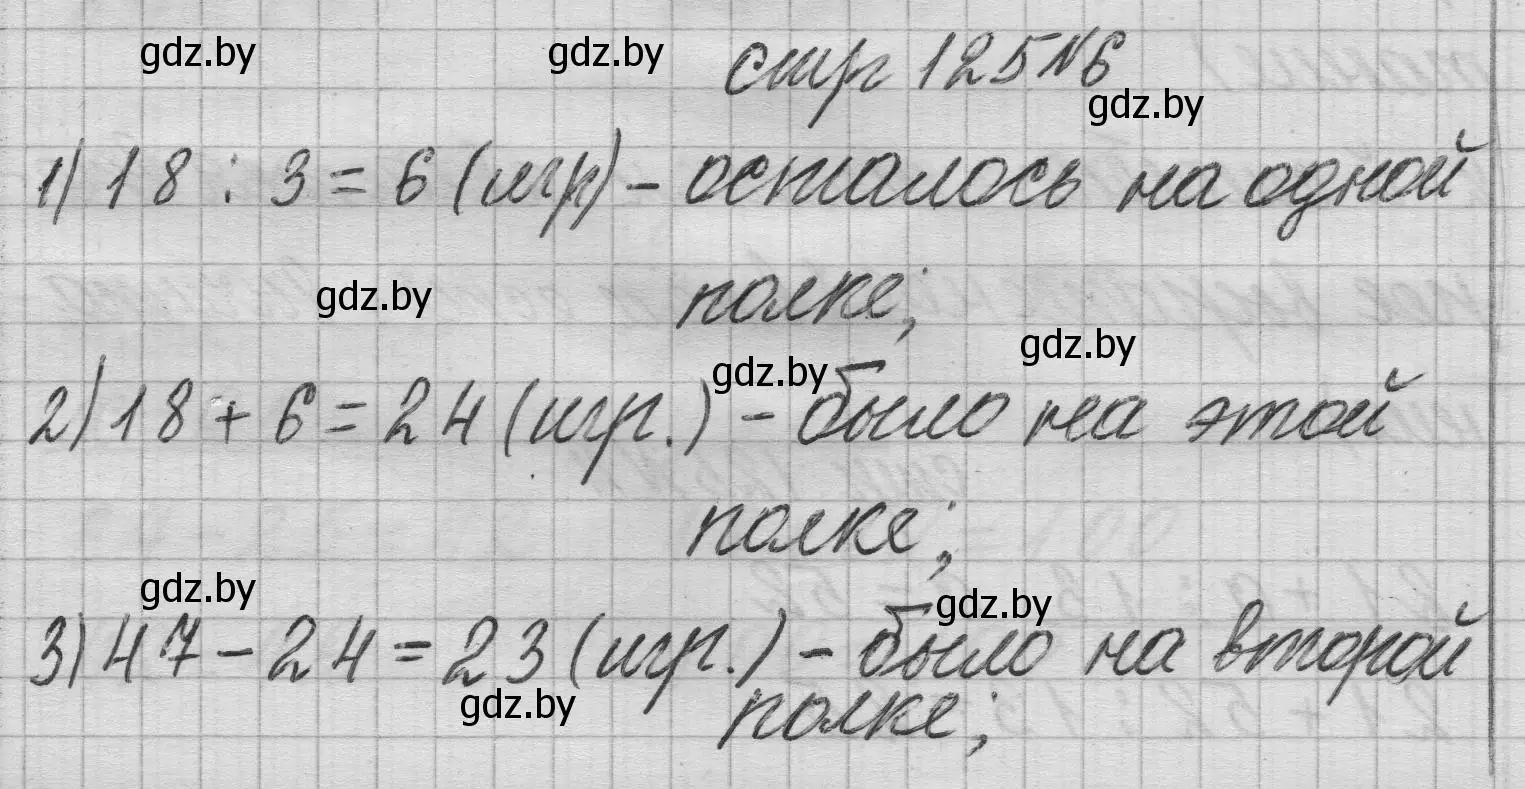 gdz.by gdz.by стр 125 №6
gdz.by
1) 18 : 3 = 6 (игр) - осталось на одной
gdz.by полке;
gdz.by gdz.by
2) 18 + 6 = 24 (игр.) - было на этой
полке;
gdz.by gdz.by
3) 47 - 24 = 23 (игр.) - было на второй
gdz.by полке;